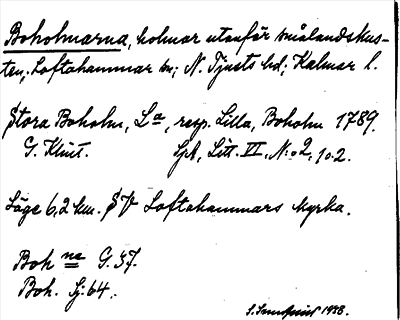 Boholmarna, holmar utanför smålandskus-
ten, Loftahammar sn; N. Tjusts hd; Kalmar l.
Stora Boholm, L:a, resp. Lilla, Boholm 1789.
G. Klint. Litt. VI, N:o 2, 1o.2.
Läge 6,2 km. SV Loftahammars kyrka.
Boh ne G. 37.
Boh. Sj. 64.
1938.